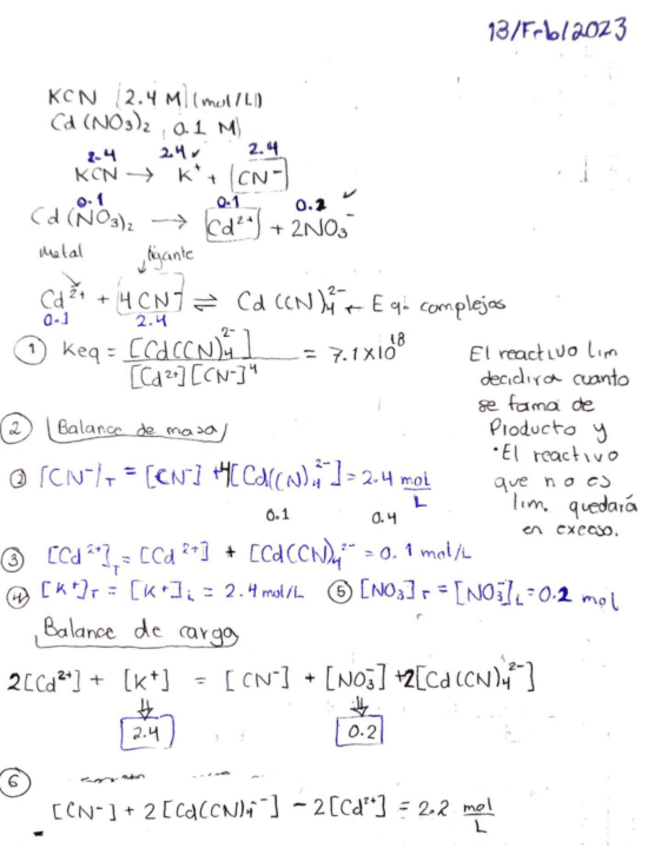 13/Feb/2023
KCN [2.4 M] (mol/L)
Cd(NO3)2, 0.1 M
2.4 2.4 ✓ 2.4
KCN → K⁺ + CN⁻
0.1 0.1 0.2 ✓
Cd(NO3)2 → Cd²⁺ + 2NO3⁻
Metal ligante
Cd²⁺ + 4CN⁻ ⇌ Cd(CN)4²⁻ ← Eq. complejos
0.1 2.4
① Keq = [Cd(CN)4²⁻] / [Cd²⁺][CN⁻]⁴ = 7.1x10¹⁸
El reactivo lim
decidira cuanto
se forma de
Producto y
•El reactivo
que no es
lim. quedará
en exceso.
② Balance de masa
② [CN⁻]T = [CN⁻] + 4[Cd(CN)4²⁻] = 2.4 mol/L
0.1 0.4
③ [Cd²⁺]T = [Cd²⁺] + [Cd(CN)4²⁻ = 0.1 mol/L
④ [K⁺]T = [K⁺]i = 2.4 mol/L ⑤ [NO3]T = [NO3⁻]L = 0.2 mol
Balance de carga
2[Cd²⁺] + [K⁺] = [CN⁻] + [NO3⁻] + 2[Cd(CN)4²⁻]
⇓ ⇓
2.4 0.2
⑥
[CN⁻] + 2[Cd(CN)4²⁻] - 2[Cd²⁺] = 2.2 mol/L